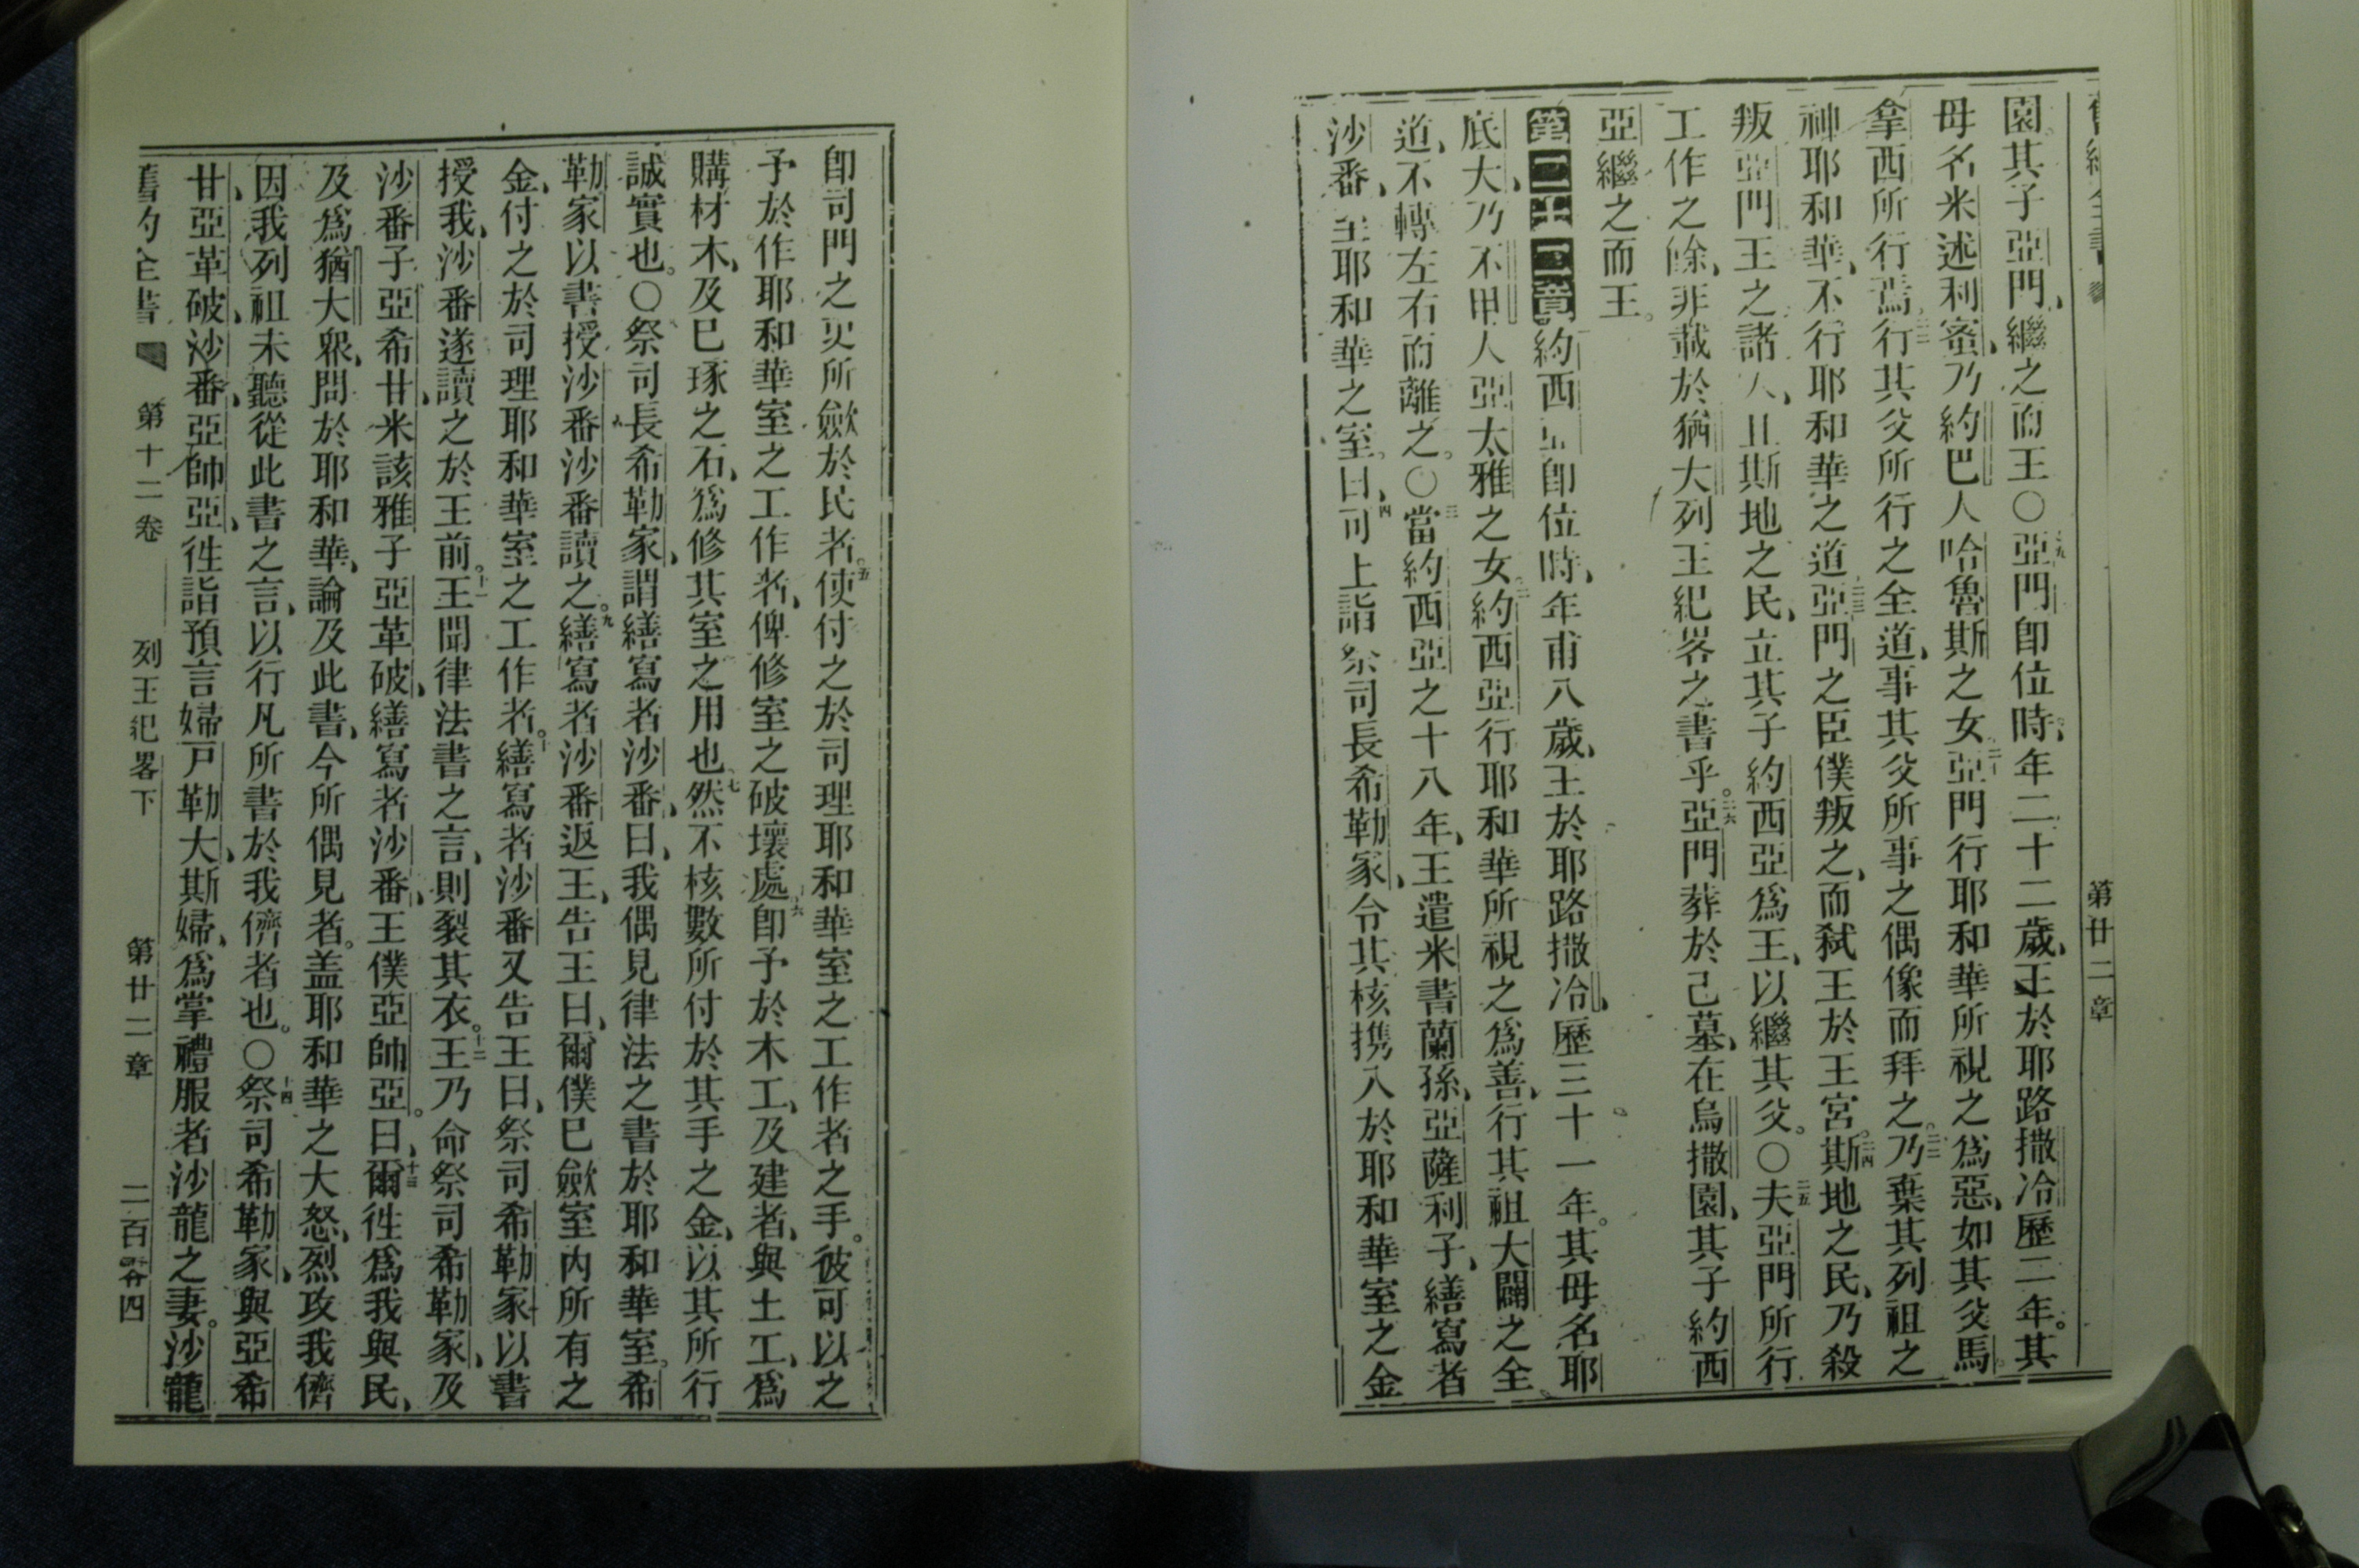 第廿二章
園其子亞門、繼之而王○亞門卽位時、年二十二歲、王於耶路撒冷歷二年。其
母名米述利蜜、乃約巴人哈魯斯之女亞門行耶和華所視之爲惡、如其父馬
拿西所行焉行其父所行之全道、事其父所事之偶像而拜之。乃棄其列祖之
神耶和華、不行耶和華之道亞門之臣僕叛之、而弒王於王宮。斯地之民、乃殺
叛亞門王之諸人、且斯地之民、立其子約西亞爲王、以繼其父。○夫亞門所行
工作之餘、非載於猶大列王紀畧之書乎。亞門葬於己墓、在烏撒園、其子約西
亞繼之而王。
第二十二章約西亞卽位時、年甫八歲、王於耶路撒冷、歷三十一年。其母名耶
底大、乃不甲人亞太雅之女。約西亞行耶和華所視之爲善、行其祖大闢之全
道、不轉左右而離之。○當約西亞之十八年、王遣米書蘭孫、亞薩利子、繕寫者
沙番、至耶和華之室。曰、可上詣祭司長希勒家、令其核携入於耶和華室之金
卽司門之吏所斂於民者。使付之於司理耶和華室之工作者之手。彼可以之
予於作耶和華室之工作者、俾修室之破壞處卽予於木工、及建者、與土工、爲
購材木、及已琢之石、爲修其室之用也然不核數所付於其手之金、以其所行
誠實也。○祭司長希勒家、謂繕寫者沙番、曰、我偶見律法之書於耶和華室。希
勒家以書授沙番沙番讀之。繕寫者沙番返王、告王曰、爾僕已斂室內所有之
金、付之於司理耶和華室之工作者。繕寫者沙番又告王曰、祭司希勒家以書
授我、沙番遂讀之於王前。王聞律法書之言、則裂其衣。王乃命祭司希勒家、及
沙番子亞希甘、米該雅子亞革破、繕寫者沙番、王僕亞帥亞。曰、爾徃爲我與民、
及爲猶大衆、問於耶和華、論及此書、今所偶見者。盖耶和華之大怒、烈攻我儕
因我列祖未聽從此書之言、以行凡所書於我儕者也。○祭司希勒家、與亞希
甘、亞革破、沙番、亞帥亞、徃詣預言婦戸勒大、斯婦、爲掌禮服者沙龍之妻。沙龍
舊約全書 第十二卷 列王紀畧下 第廿二章 二百零四